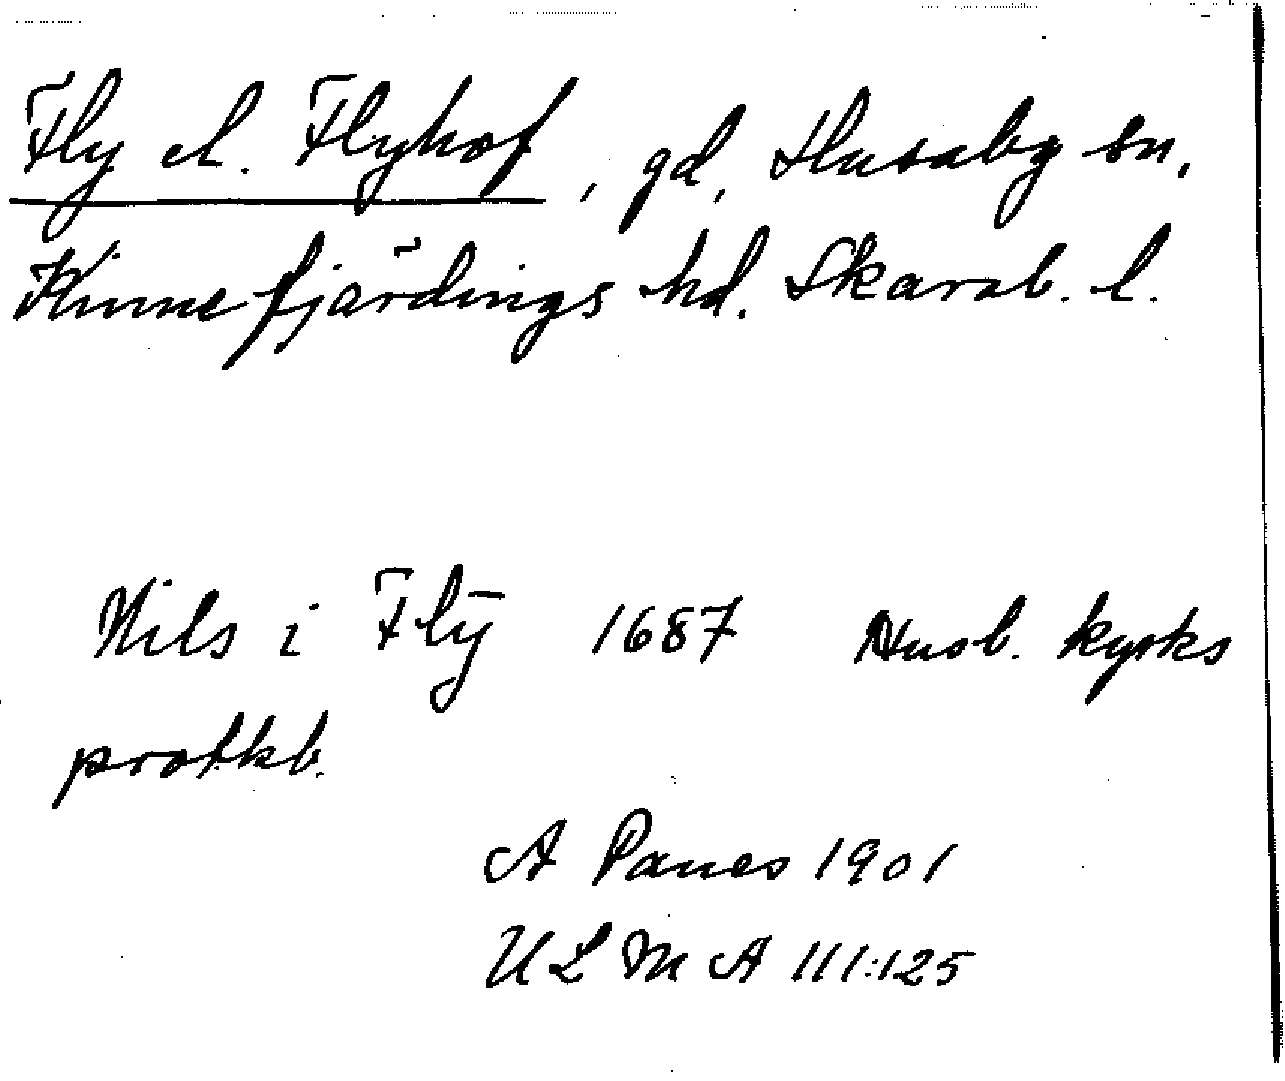 Fly el. Flyhof, gd, Husaby sn,
Kinnefjärdings hd. Skarab. l.
Nils i Flÿ 1687 Husb. kyrks
protkb.
A Panes 1901
ULMA 111:125